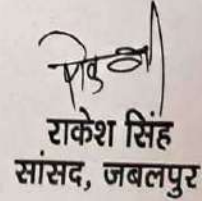 राकेश सिंह
सांसद, जबलपुर